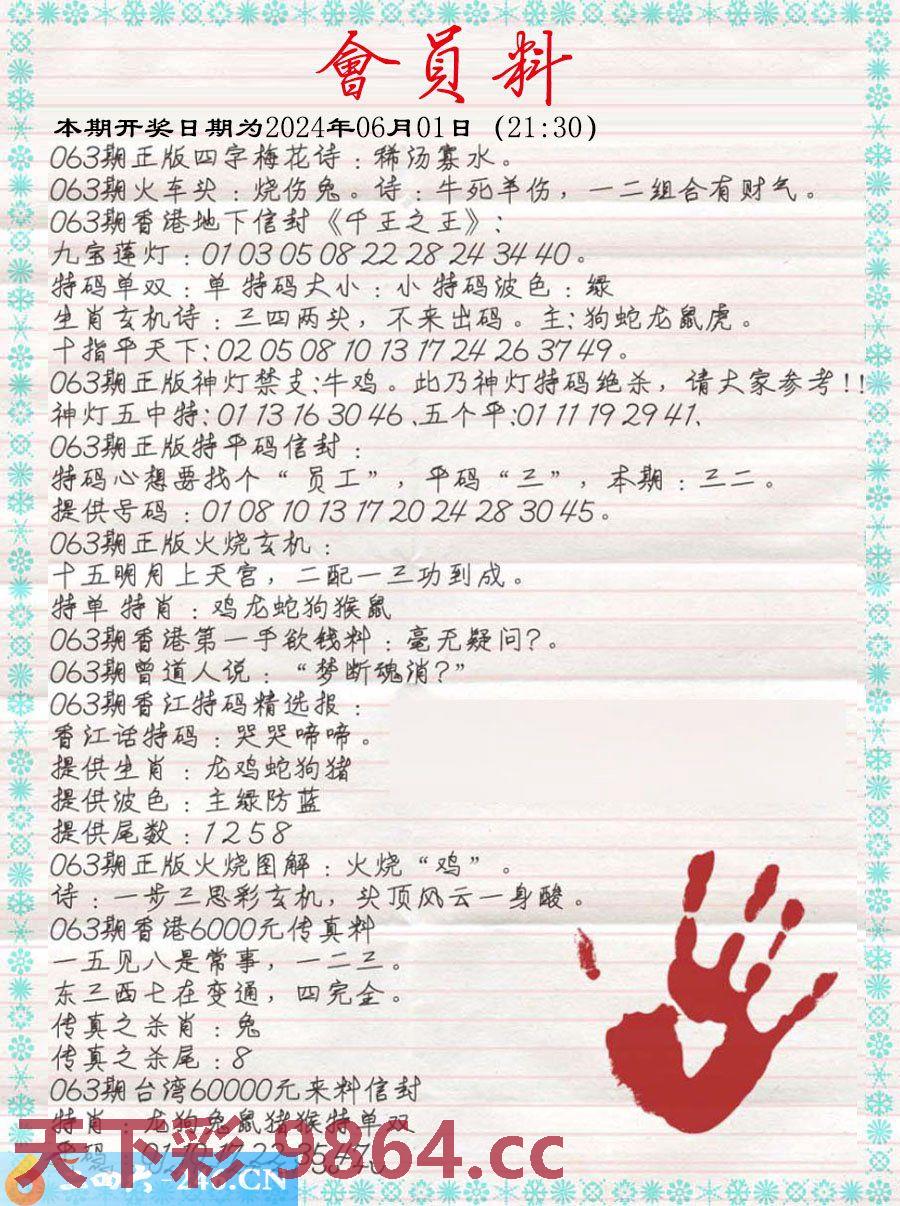 會員料
本期开奖日期为2024年06月01日（21:30）
063期正版四字梅花诗：稀汤寡水。
063期火车头：烧伤兔。诗：牛死羊伤，一二组合有财气。
063期香港地下信封《千王之王》：
九宝莲灯：01 03 05 08 22 28 24 34 40。
特码单双：单 特码大小：小 特码波色：绿
生肖玄机诗：三四两头，不来出码。主：狗蛇龙鼠虎。
十指平天下：02 05 08 10 13 17 24 26 37 49。
063期正版神灯禁支：牛鸡。此乃神灯特码绝杀，请大家参考!!
神灯五中特：01 13 16 30 46、五个平：01 11 19 29 41、
063期正版特平码信封：
特码心想要找个“员工”，平码“三”，本期：三二。
提供号码：01 08 10 13 17 20 24 28 30 45。
063期正版火烧玄机：
十五明月上天宫，二配一三功到成。
特单 特肖：鸡龙蛇狗猴鼠
063期香港第一手欲钱料：毫无疑问?。
063期曾道人说：“梦断魂消?”
063期香江特码精选报：
香江话特码：哭哭啼啼。
提供生肖：龙鸡蛇狗猪
提供波色：主绿防蓝
提供尾数：1 2 5 8
063期正版火烧图解：火烧“鸡”。
诗：一步三思彩玄机，头顶风云一身酸。
063期香港6000元传真料
一五见八是常事，一二三。
东三西七在变通，四完金。
传真之杀肖：兔
传真之杀尾：8
063期台湾60000元来料信封
特肖：龙狗兔鼠猪猴特单双
天下彩-9864.cc
-246.CN